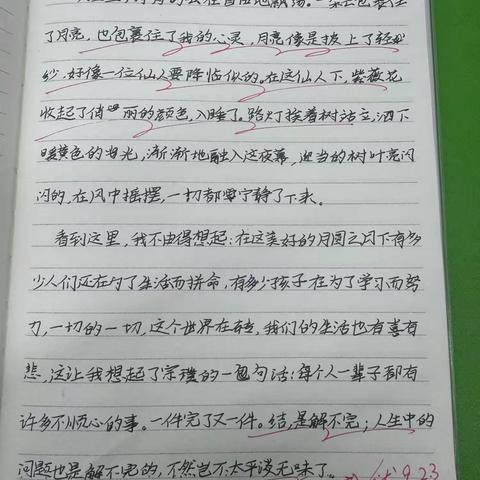 了月亮，也包裹住了我的心灵，月亮像是披上了轻
纱，好像一位仙人要降临似的。在这仙人下，紫薇花
收起了俏丽的颜色，入睡了。路灯挨着树站立，洒下
暖黄色的光，渐渐地融入这夜幕，迎当的树叶亮闪
闪的，在风中摇摆，一切都宁静了下来。
看到这里，我不由得想起：在这美好的月圆之月下有多
少人们还在为了生活而拼命，有多少孩子在为了学习而努
力，一切的一切，这个世界在转，我们的生活也有喜有
悲，这让我想起了宗璞的一句话：每个人一辈子都有
许多不顺心的事。一件完了又一件。结，是解不完；人生中的
问题也是解不完的，不然岂不太平淡无味了。
9.23